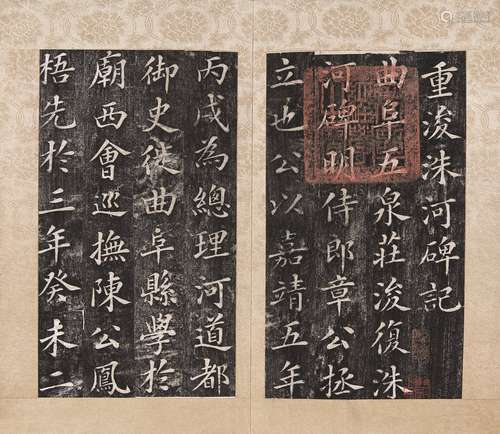 重浚洙河碑記
曲阜五泉莊浚復洙
河碑明侍郎章公拯
立也公以嘉靖五年
丙戌為總理河道都
御史徒曲阜縣學於
廟西會巡撫陳公鳳
梧先於三年癸未二